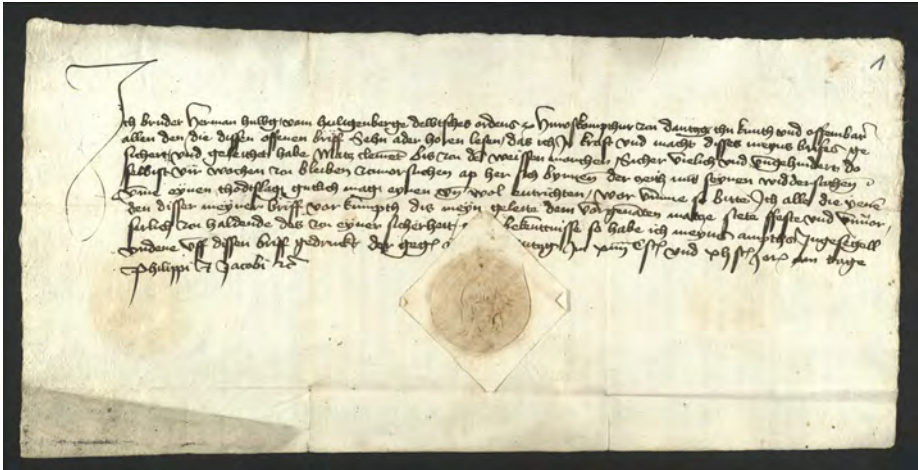 1
Ich bruder Herman hulwig vom heiligenberge dewtsches ordens Huwskompthur czu dantzg thu kunth vnd offembar
allen den die dissen offenen briff sehn ader horen lesen / das ich In kraft vnd macht disses meyns brifes ge
sichert vnd geleithet habe Matz clemet bis czu der weissen monchen / sicher vrelich vnd vngehindert do
selbist vir wochen czu bleiben czuuorsuchen ap her sich bynnen der zeith mit seynen widdersachen
vmme eynen thodtslag gutlich mag eynen vnd wol entrichten / Wor vmme so bitte Ich alle die yene
den disser meyner briff vor kumpth dis meyn geleite dem vorgenanten matze stete ffeste vnd vnuor
serlich czu haldende des czu eyner sicherheit bekentnisse so habe ich meyns ampths Ingesegill
vndene vff dissen briff gedruckt der gegeben Im xiiii vnd Jare am tage
Philippi et Jacobi etc